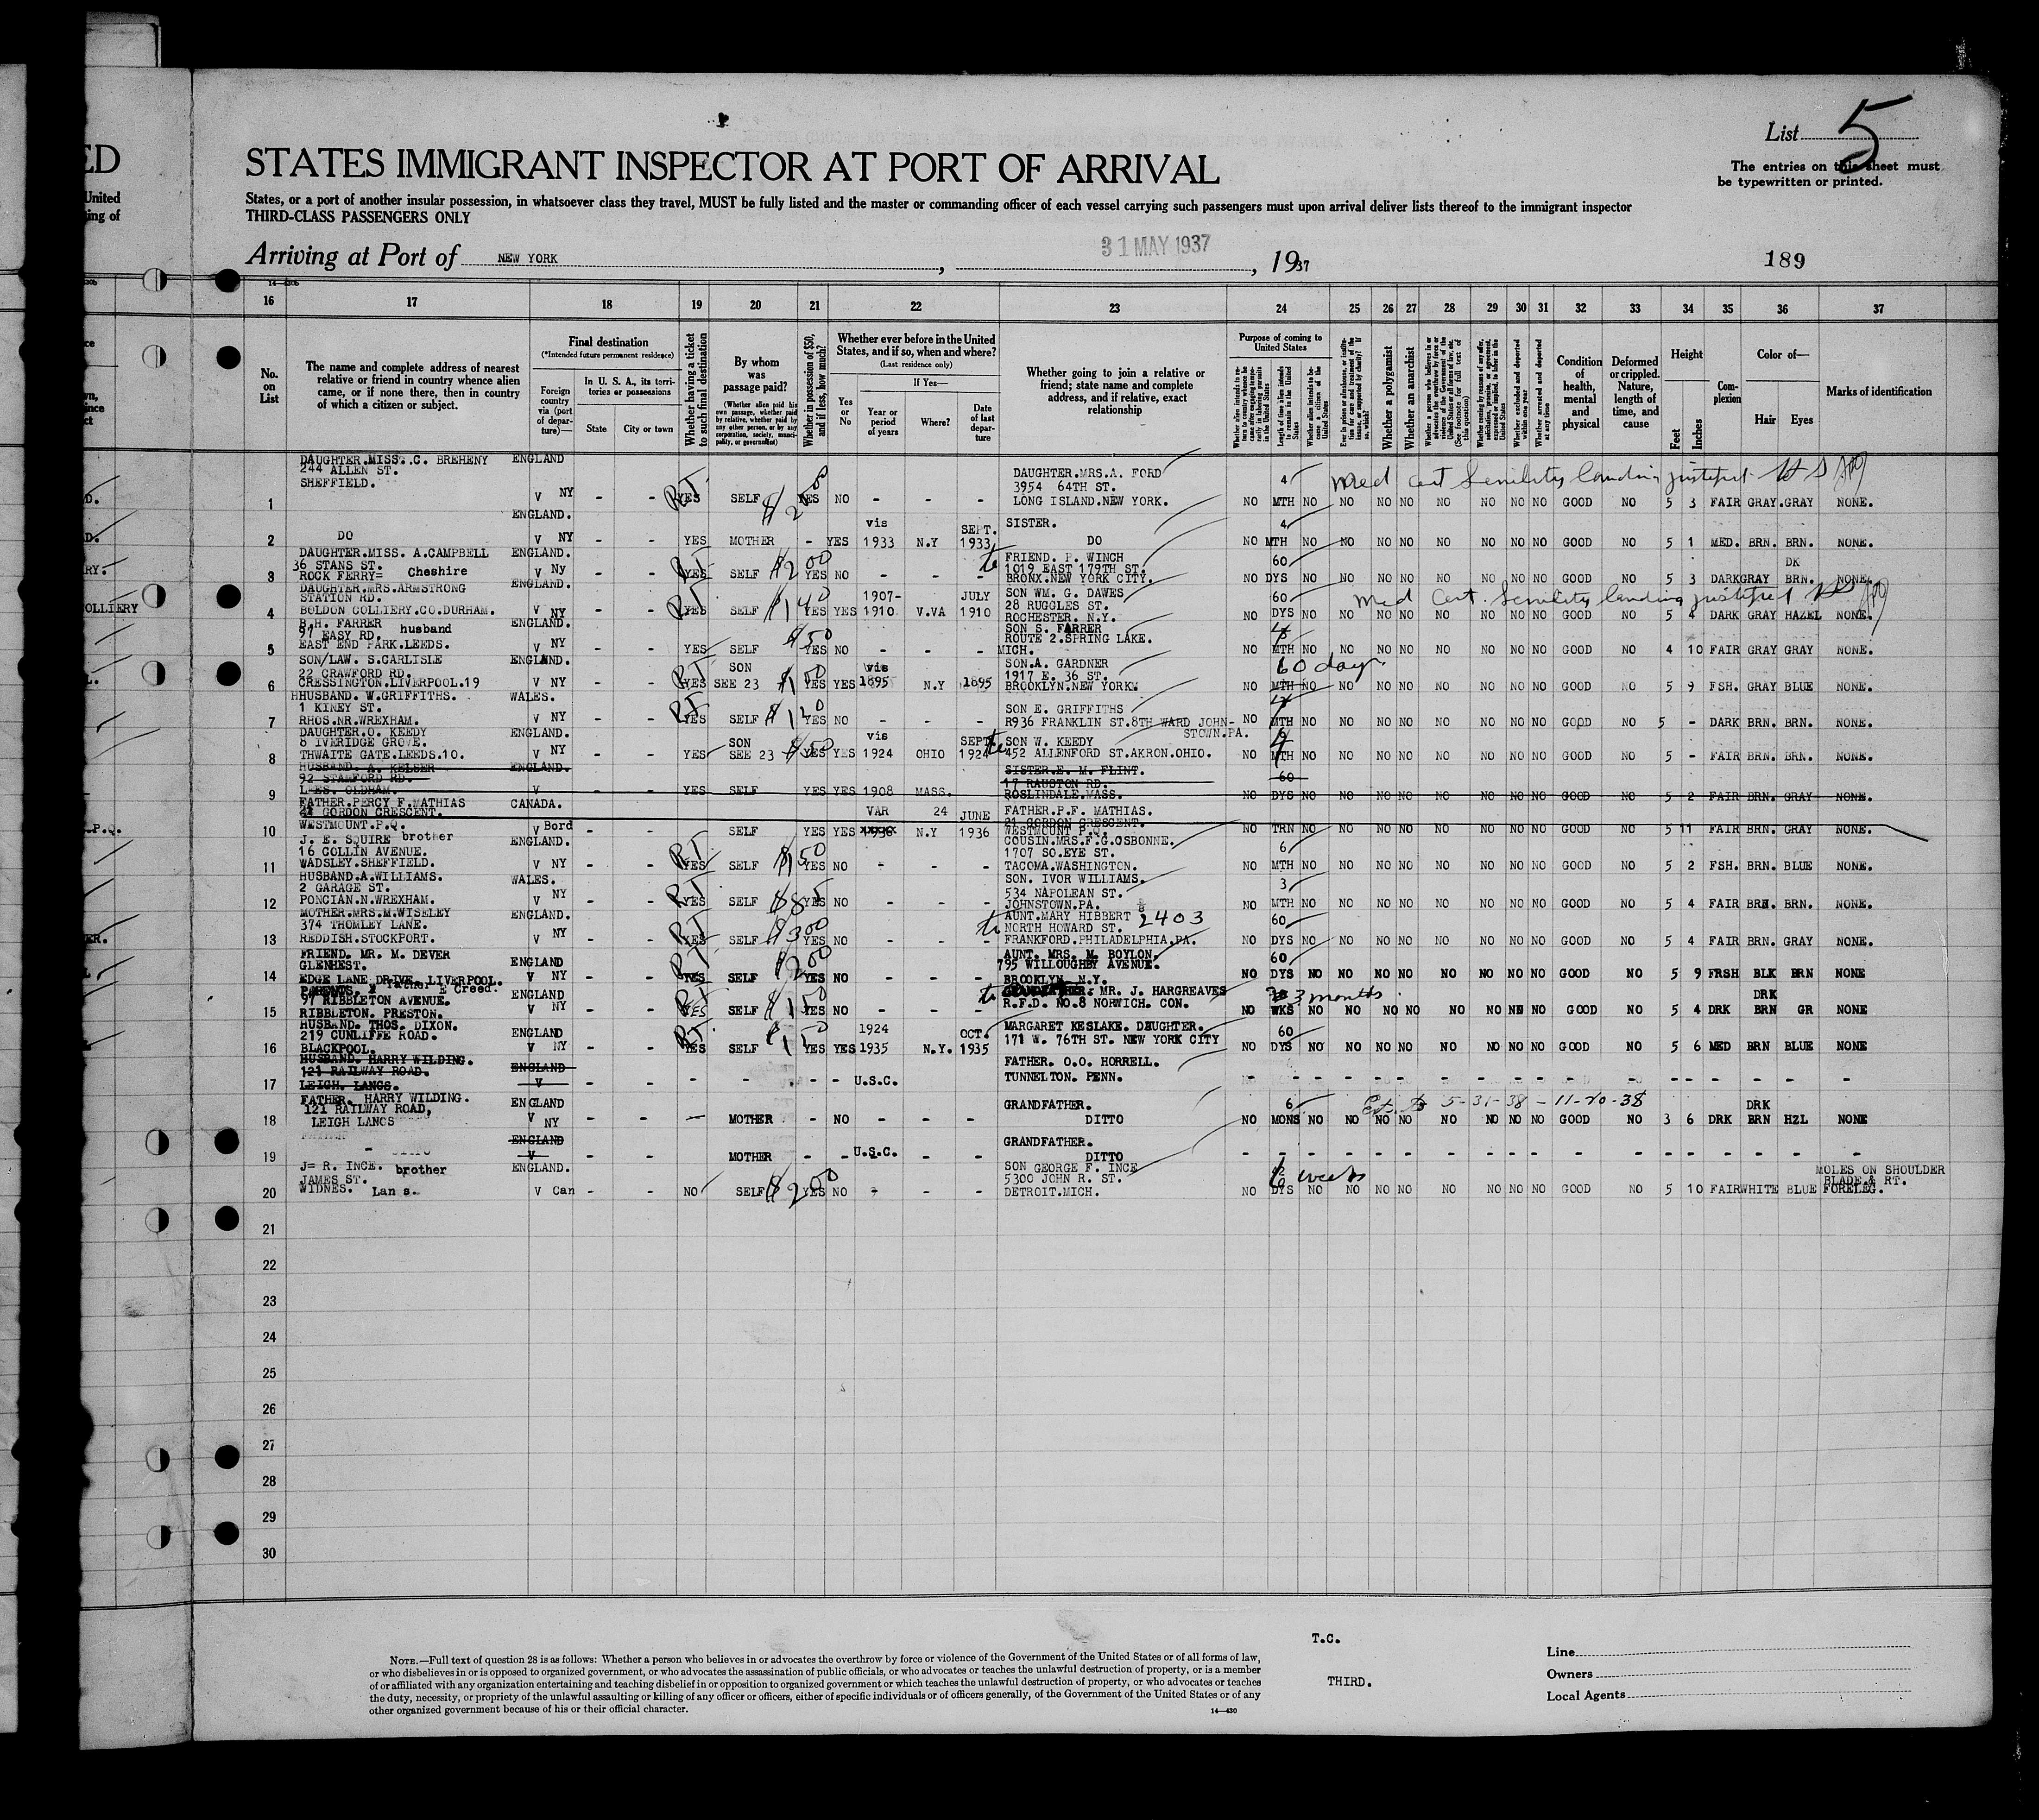 List 5
The entries on this sheet must
be typewritten or printed.
ED
STATES IMMIGRANT INSPECTOR AT PORT OF ARRIVAL
United
States, or a port of another insular possession, in whatsoever class they travel, MUST be fully listed and the master or commanding officer of each vessel carrying such passengers must upon arrival deliver lists thereof to the immigrant inspector
THIRD-CLASS PASSENGERS ONLY
Arriving at Port of NEW YORK, 31 MAY 1937, 1937
189
16 17 18 19 20 21 22 23 24 25 26 27 28 29 30 31 32 33 34 35 36 37
No. on List
The name and complete address of nearest
relative or friend in country whence alien
came, or if none there, then in country
of which a citizen or subject.
Final destination
(*Intended future permanent residence)
Foreign country via (port of departure)—
In U. S. A., its territories or possessions
State City or town
Whether having a ticket to such final destination
By whom was passage paid?
(Whether alien paid his own passage, whether paid by relative, whether paid by any other person, or by any corporation, society, municipality, or government)
Whether in possession of $50, and if less, how much?
Whether ever before in the United
States, and if so, when and where?
(Last residence only)
Yes or No
If Yes—
Year or period of years
Where?
Date of last departure
Whether going to join a relative or
friend; state name and complete
address, and if relative, exact
relationship
Purpose of coming to United States
Whether a polygamist
Whether an anarchist
Condition of health, mental and physical
Deformed or crippled. Nature, length of time, and cause
Height
Feet Inches
Complexion
Color of—
Hair Eyes
Marks of identification
DAUGHTER.MISS.C. BREHENY ENGLAND
244 ALLEN ST.
SHEFFIELD.
DAUGHTER.MRS.A. FORD
3954 64TH ST.
LONG ISLAND.NEW YORK.
Med cert Senility landing justified
1 V NY - - RT YES SELF $200 YES NO - - - NO 4 MTH NO NO NO NO NO NO NO NO GOOD NO 5 3 FAIR GRAY.GRAY NONE.
ENGLAND.
vis SEPT. SISTER.
2 DO V NY - - YES MOTHER - YES 1933 N.Y 1933 DO NO 4 MTH NO NO NO NO NO NO NO NO GOOD NO 5 1 MED. BRN. BRN. NONE.
DAUGHTER.MISS. A.CAMPBELL ENGLAND.
36 STANS ST.
ROCK FERRY= Cheshire
FRIEND. P. WINCH
1019 EAST 179TH ST.
BRONX.NEW YORK CITY.
3 V Ny - - RT YES SELF $200 YES NO - - - NO 60 DYS NO NO NO NO NO NO NO NO GOOD NO 5 3 DARK GRAY DK BRN. NONE.
DAUGHTER.MRS.ARMSTRONG ENGLAND.
STATION RD.
BOLDON COLLIERY.CO.DURHAM.
SON WM. G. DAWES
28 RUGGLES ST.
ROCHESTER. N.Y.
Med Cert. Senility landing justified
4 V NY - - RT YES SELF $140 YES YES 1907-1910 V.VA JULY 1910 NO 60 DYS NO NO NO NO NO NO NO NO GOOD NO 5 4 DARK GRAY HAZEL NONE.
B.H. FARRER husband ENGLAND.
97 EASY RD.
EAST END PARK.LEEDS.
SON S. FARRER
ROUTE 2.SPRING LAKE.
MICH.
5 V NY - - YES SELF $50 YES NO - - - NO MTH NO NO NO NO NO NO NO NO GOOD NO 4 10 FAIR GRAY GRAY NONE.
SON/LAW. S.CARLISLE ENGLAND.
22 CRAWFORD RD.
CRESSINGTON.LIVERPOOL.19
SON.A. GARDNER
1917 E. 36 ST.
BROOKLYN.NEW YORK.
6 V NY - - RT YES SON SEE 23 $100 YES YES vis 1895 N.Y 1895 60 days NO MTH NO NO NO NO NO NO NO NO GOOD NO 5 9 FSH. GRAY BLUE NONE.
HHUSBAND. W.GRIFFITHS. WALES.
1 KINEY ST.
RHOS.NR.WREXHAM.
SON E. GRIFFITHS
R936 FRANKLIN ST.8TH WARD JOHN-
STOWN.PA.
7 V NY - - RT YES SELF $120 YES NO - - - NO MTH NO NO NO NO NO NO NO NO GOOD NO 5 - DARK BRN. BRN. NONE.
DAUGHTER.O. KEEDY ENGLAND.
8 IVERIDGE GROVE.
THWAITE GATE.LEEDS.10.
SON W. KEEDY
452 ALLENFORD ST.AKRON.OHIO.
8 V NY - - YES SON SEE 23 $50 YES YES vis 1924 OHIO SEPT 1924 NO MTH NO NO NO NO NO NO NO NO GOOD NO 5 - FAIR BRN. BRN. NONE.
HUSBAND. A. KELSER ENGLAND.
92 STAMFORD RD.
LEES. OLDHAM.
SISTER.E. M. FLINT.
17 RAUSTON RD.
ROSLINDALE.MASS.
9 V - - YES SELF YES YES 1908 MASS. NO 60 DYS NO NO NO NO NO NO NO NO GOOD NO 5 2 FAIR BRN. GRAY NONE.
FATHER.PERCY F.MATHIAS CANADA.
GORDON CRESCENT.
WESTMOUNT.P.Q.
FATHER.P.F. MATHIAS.
21 GORDON CRESCENT.
WESTMOUNT P.Q.
10 V Bord - - SELF YES YES VAR N.Y 24 JUNE 1936 NO TRN NO NO NO NO NO NO NO NO GOOD NO 5 11 FAIR BRN. GRAY NONE.
J. E. SQUIRE brother ENGLAND.
16 COLLIN AVENUE.
WADSLEY.SHEFFIELD.
COUSIN.MRS.F.G.OSBONNE.
1707 SO.EYE ST.
TACOMA.WASHINGTON.
11 V NY - - RT YES SELF $150 YES NO - - - NO 6 MTH NO NO NO NO NO NO NO NO GOOD NO 5 2 FSH. BRN. BLUE NONE.
HUSBAND.A.WILLIAMS. WALES.
2 GARAGE ST.
PONCIAN.N.WREXHAM.
SON. IVOR WILLIAMS.
534 NAPOLEAN ST.
JOHNSTOWN.PA.
12 V NY - - RT YES SELF $85 YES NO - - - NO 3 MTH NO NO NO NO NO NO NO NO GOOD NO 5 4 FAIR BRN. BRN. NONE.
MOTHER.MRS.M.WISELEY ENGLAND.
374 THOMLEY LANE.
REDDISH.STOCKPORT.
AUNT.MARY HIBBERT 2403
NORTH HOWARD ST.
FRANKFORD.PHILADELPHIA.PA.
13 V NY - - RT YES SELF $300 YES NO - - - NO 60 DYS NO NO NO NO NO NO NO NO GOOD NO 5 4 FAIR BRN. GRAY NONE.
FRIEND. MR. M. DEVER ENGLAND
GLENHEST.
EDGE LANE DRIVE. LIVERPOOL.
AUNT. MRS. M. BOYLON.
795 WILLOUGHBY AVENUE.
BROOKLYN N.Y.
14 V NY - - RT YES SELF $200 YES NO - - - NO 60 DYS NO NO NO NO NO NO NO NO GOOD NO 5 9 FRSH BLK BRN NONE
PARENTS. father E Creed. ENGLAND
97 RIBBLETON AVENUE.
RIBBLETON. PRESTON.
GRANDFATHER. MR. J. HARGREAVES
R.F.D. NO.8 NORWICH. CON.
15 V NY - - RT YES SELF $150 YES NO - - - 3 months NO WKS NO NO NO NO NO NO NO NO GOOD NO 5 4 DRK DRK BRN GR NONE
HUSBAND. THOS. DIXON. ENGLAND
219 CUNLIFFE ROAD.
BLACKPOOL.
MARGARET KESLAKE. DAUGHTER.
171 W. 76TH ST. NEW YORK CITY
16 V NY - - RT YES SELF $150 YES YES 1924 1935 N.Y. OCT. 1935 NO 60 DYS NO NO NO NO NO NO NO NO GOOD NO 5 6 MED BRN BLUE NONE
HUSBAND. HARRY WILDING. ENGLAND
121 RAILWAY ROAD.
LEIGH. LANCS.
FATHER. O.O. HORRELL.
TUNNELTON. PENN.
17 V - - - - - - U.S.C. - -
FATHER. HARRY WILDING. ENGLAND
121 RAILWAY ROAD,
LEIGH LANCS
GRANDFATHER.
DITTO
5-31-38 - 11-20-38
18 V NY - - - MOTHER - NO - - - NO 6 MONS NO NO NO NO NO NO NO NO GOOD NO 3 6 DRK DRK BRN HZL NONE
ENGLAND GRANDFATHER.
19 V - - MOTHER - - U.S.C. - - DITTO
J= R. INCE. brother ENGLAND.
JAMES ST.
WIDNES. Lans.
SON GEORGE F. INCE
5300 JOHN R. ST.
DETROIT.MICH.
MOLES ON SHOULDER
BLADE.& RT.
FORELEG.
20 V Can - - NO SELF $200 YES NO - - - 6 weeks NO DYS NO NO NO NO NO NO NO NO GOOD NO 5 10 FAIR WHITE BLUE
21
22
23
24
25
26
27
28
29
30
T.C.
THIRD.
Line
Owners
Local Agents
NOTE.—Full text of question 28 is as follows: Whether a person who believes in or advocates the overthrow by force or violence of the Government of the United States or of all forms of law,
or who disbelieves in or is opposed to organized government, or who advocates the assassination of public officials, or who advocates or teaches the unlawful destruction of property, or is a member
of or affiliated with any organization entertaining and teaching disbelief in or opposition to organized government or which teaches the unlawful destruction of property, or who advocates or teaches
the duty, necessity, or propriety of the unlawful assaulting or killing of any officer or officers, either of specific individuals or of officers generally, of the Government of the United States or of any
other organized government because of his or their official character.
14—430